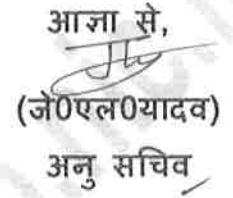 आज्ञा से,
(जे0एल0यादव)
अनु सचिव